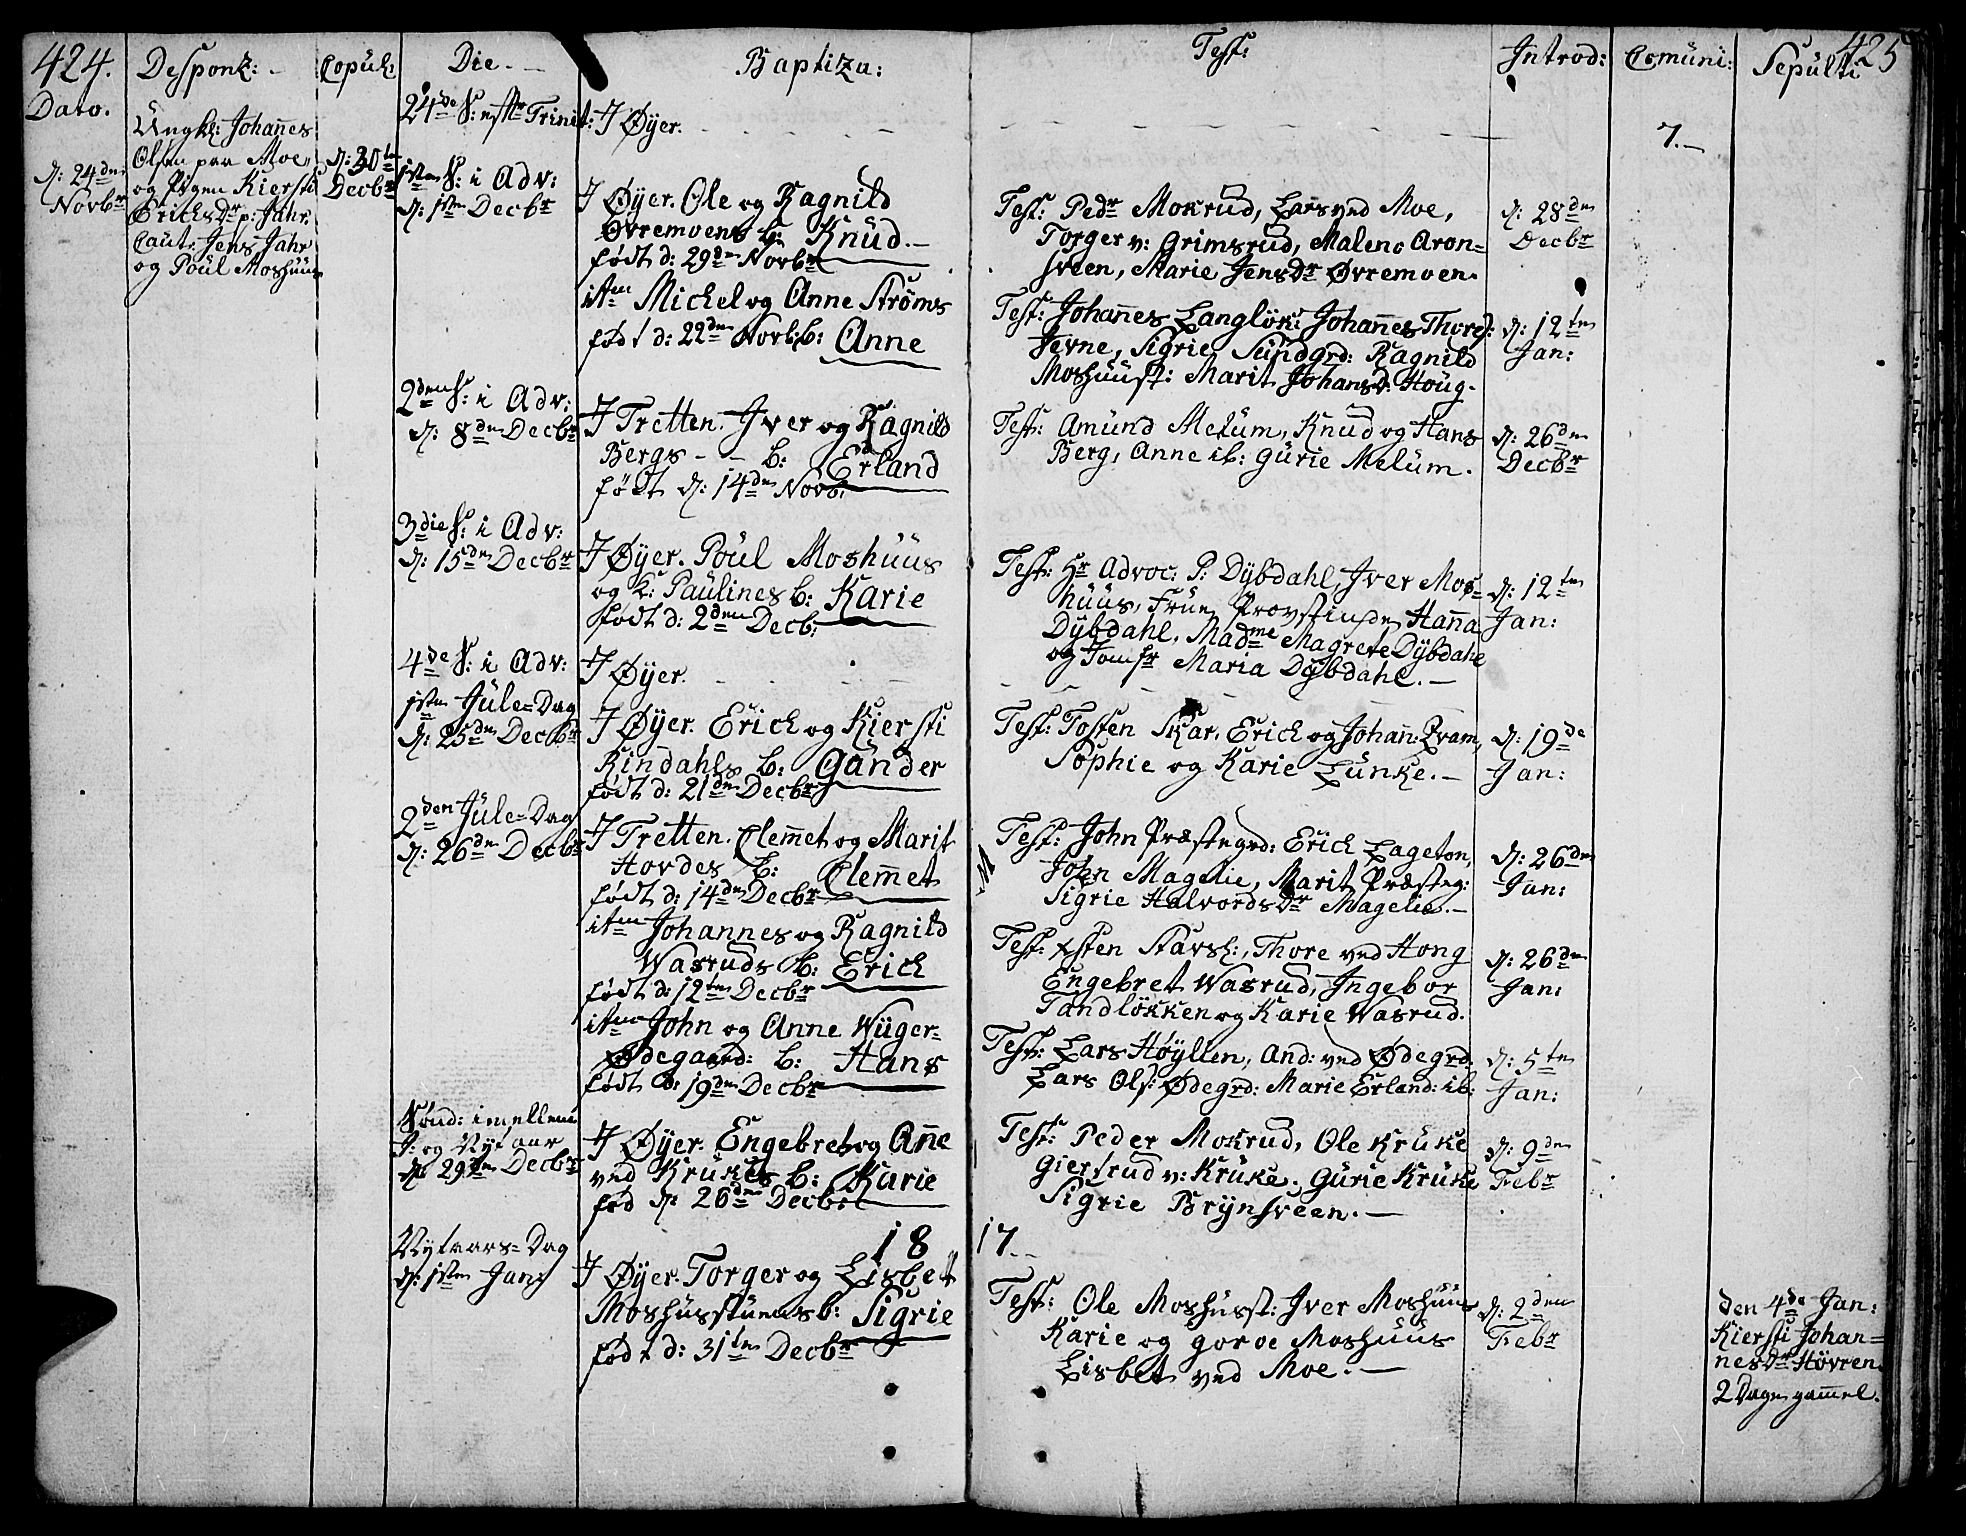 424.
425
Desponſ: -
Copul:
Die. -
Baptiza:
Teſt:
Introd:
Comūni:
Sepulti
Dato.
d: 24dn
Novbr
Ungkl: Johañes
Olsen paa Moe,
og Pigen Kiersti
Erichsdr p: Jahr.
Caut: Jens Jahr
og Poül Moshüus
d: 30te
Decbr
24de S: eftr Trinit:
I Øyer.
7.-
1sten S: i Adv:
d: 1sten Decbr
I Øyer. Ole og Ragnild
Øvremoens b: Knüd.-
født d: 29dn Novbr
Test: Pedr Mokrud, Lars ved Moe,
Torger v: Grimsrud, Malene Aron=
sveen, Marie Jensdr Øvremoen.
d: 28dn
Decbr
item Michel og Anne Ströms
født d: 22dn Novb: b: Anne
Test: Johañes Langlök: Johañes Thord:
Jevne, Sigrie Sündgrd: Ragnild
Moshüust: Marit Johansd: Houg.
d: 12tn
Jan:
2den S: i Adv:
d: 8dn Decbr
I Tretten. Iver og Ragnild
Bergs - - b: Erland
født d: 14dn Novb:
Test: Amünd Melüm, Knüd og Hans
Berg, Anne ib: Gürie Melüm.
d: 26dn
Decbr
3die S: i Adv:
d: 15dn Decbr
I Øyer. Poül Moshüüs
og K: Paulines b: Karie
født d: 2den Decb:
Test: Hr Advoc: P: Dÿbdahl, Iver Mos=
hüüs, Früe Provstinde Hanna
Dÿbdahl, Madme Magrete Dÿbdahl
og Jomfr Maria Dÿbdahl.-
d: 12tn
Jan:
4de S: i Adv:
I Øyer.
1sten Jüle=Dag
d: 25dn Decbr
I Øyer. Erich og Kiersti
Rindahls b: Gänder
født d: 21dn Decbr
Test: Tosten Skar, Erich og Johan: Bram,
Sophie og Karie Lünke.-
d: 19de
Jan:
2den Jüle=Dag
d: 26dn Decbr
I Tretten. Clem̃et og Marit
Hovdes b: Clem̃et
født d: 14dn Decbr
Test: John Præstegrd: Erich Lageton,
John Magelie, Marit Præsteg:
Sigrie Halvordsdr Magelie.-
d: 26dn
Jan:
item Johannes og Ragnild
Wasruds b: Erich
født d: 12tn Decbr
Test: Østen Stavsl:, Thore ved Hong
Engebret Wasrud, Ingebor
Tandlökken og Karie Wasrud.
d: 26dn
Jan:
item John og Anne Wüger=
ødegaard: b: Hans
født d: 19dn Decbr
Test: Lars Høyllen, And: ved Ødegrd
Lars Ols: Ødegrd: Marie Erland: ib:
d: 5tn
Jan:
Sönd: imellem
J: og Nytaar
d: 29dn Decbr
I Øyer. Engebret og Añe
ved Krükes b: Karie
fød d: 26dn Decbr
Test: Peder Mokrud, Ole Krüke
Giertrud v: Krüke. Gürie Krüke
Sigrie Brÿnsveen.-
d: 9dn
Febr
1817.-
Nytaars=Dag
d: 1sten Jan:
I Øyer. Torger og Lisbet
Moshusstuens b: Sigrie
født d: 31tn Decbr
Test: Ole Moshusst: Iver Moshuus
Karie og goroe Moshuus
Lisbet ved Moe.-
d: 2den
Febr
den 4de Jan:
Kiersti Johan=
nesdr Hövren
2 Dage gam̃el.